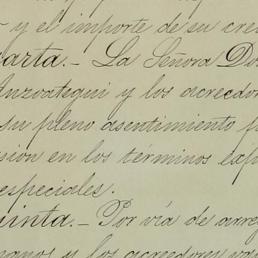 y el importe de su cre
arta.- La Señora Do
nzoategui y los acreedor
su pleno asentimiento p
sion en los términos esp
especiales.
inta.- Por vía de arre
y los acreedores